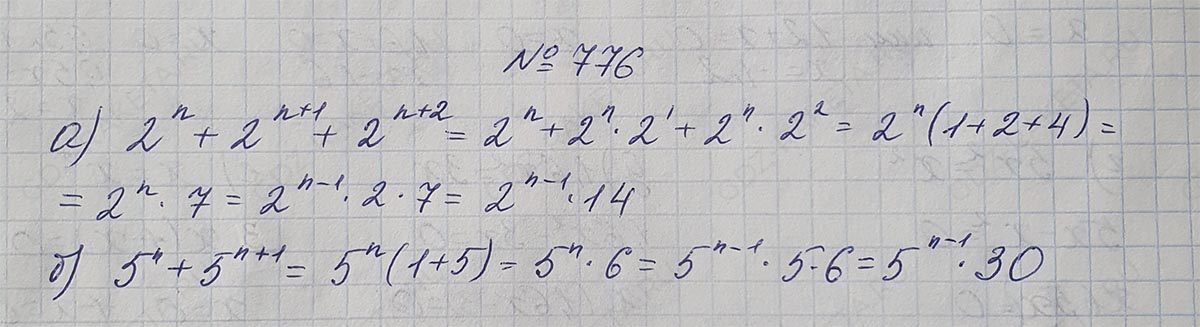 № 776
а) 2ⁿ + 2ⁿ⁺¹ + 2ⁿ⁺² = 2ⁿ + 2ⁿ · 2¹ + 2ⁿ · 2² = 2ⁿ (1 + 2 + 4) =
= 2ⁿ · 7 = 2ⁿ⁻¹ · 2 · 7 = 2ⁿ⁻¹ · 14
б) 5ⁿ + 5ⁿ⁺¹ = 5ⁿ (1 + 5) = 5ⁿ · 6 = 5ⁿ⁻¹ · 5 · 6 = 5ⁿ⁻¹ · 30